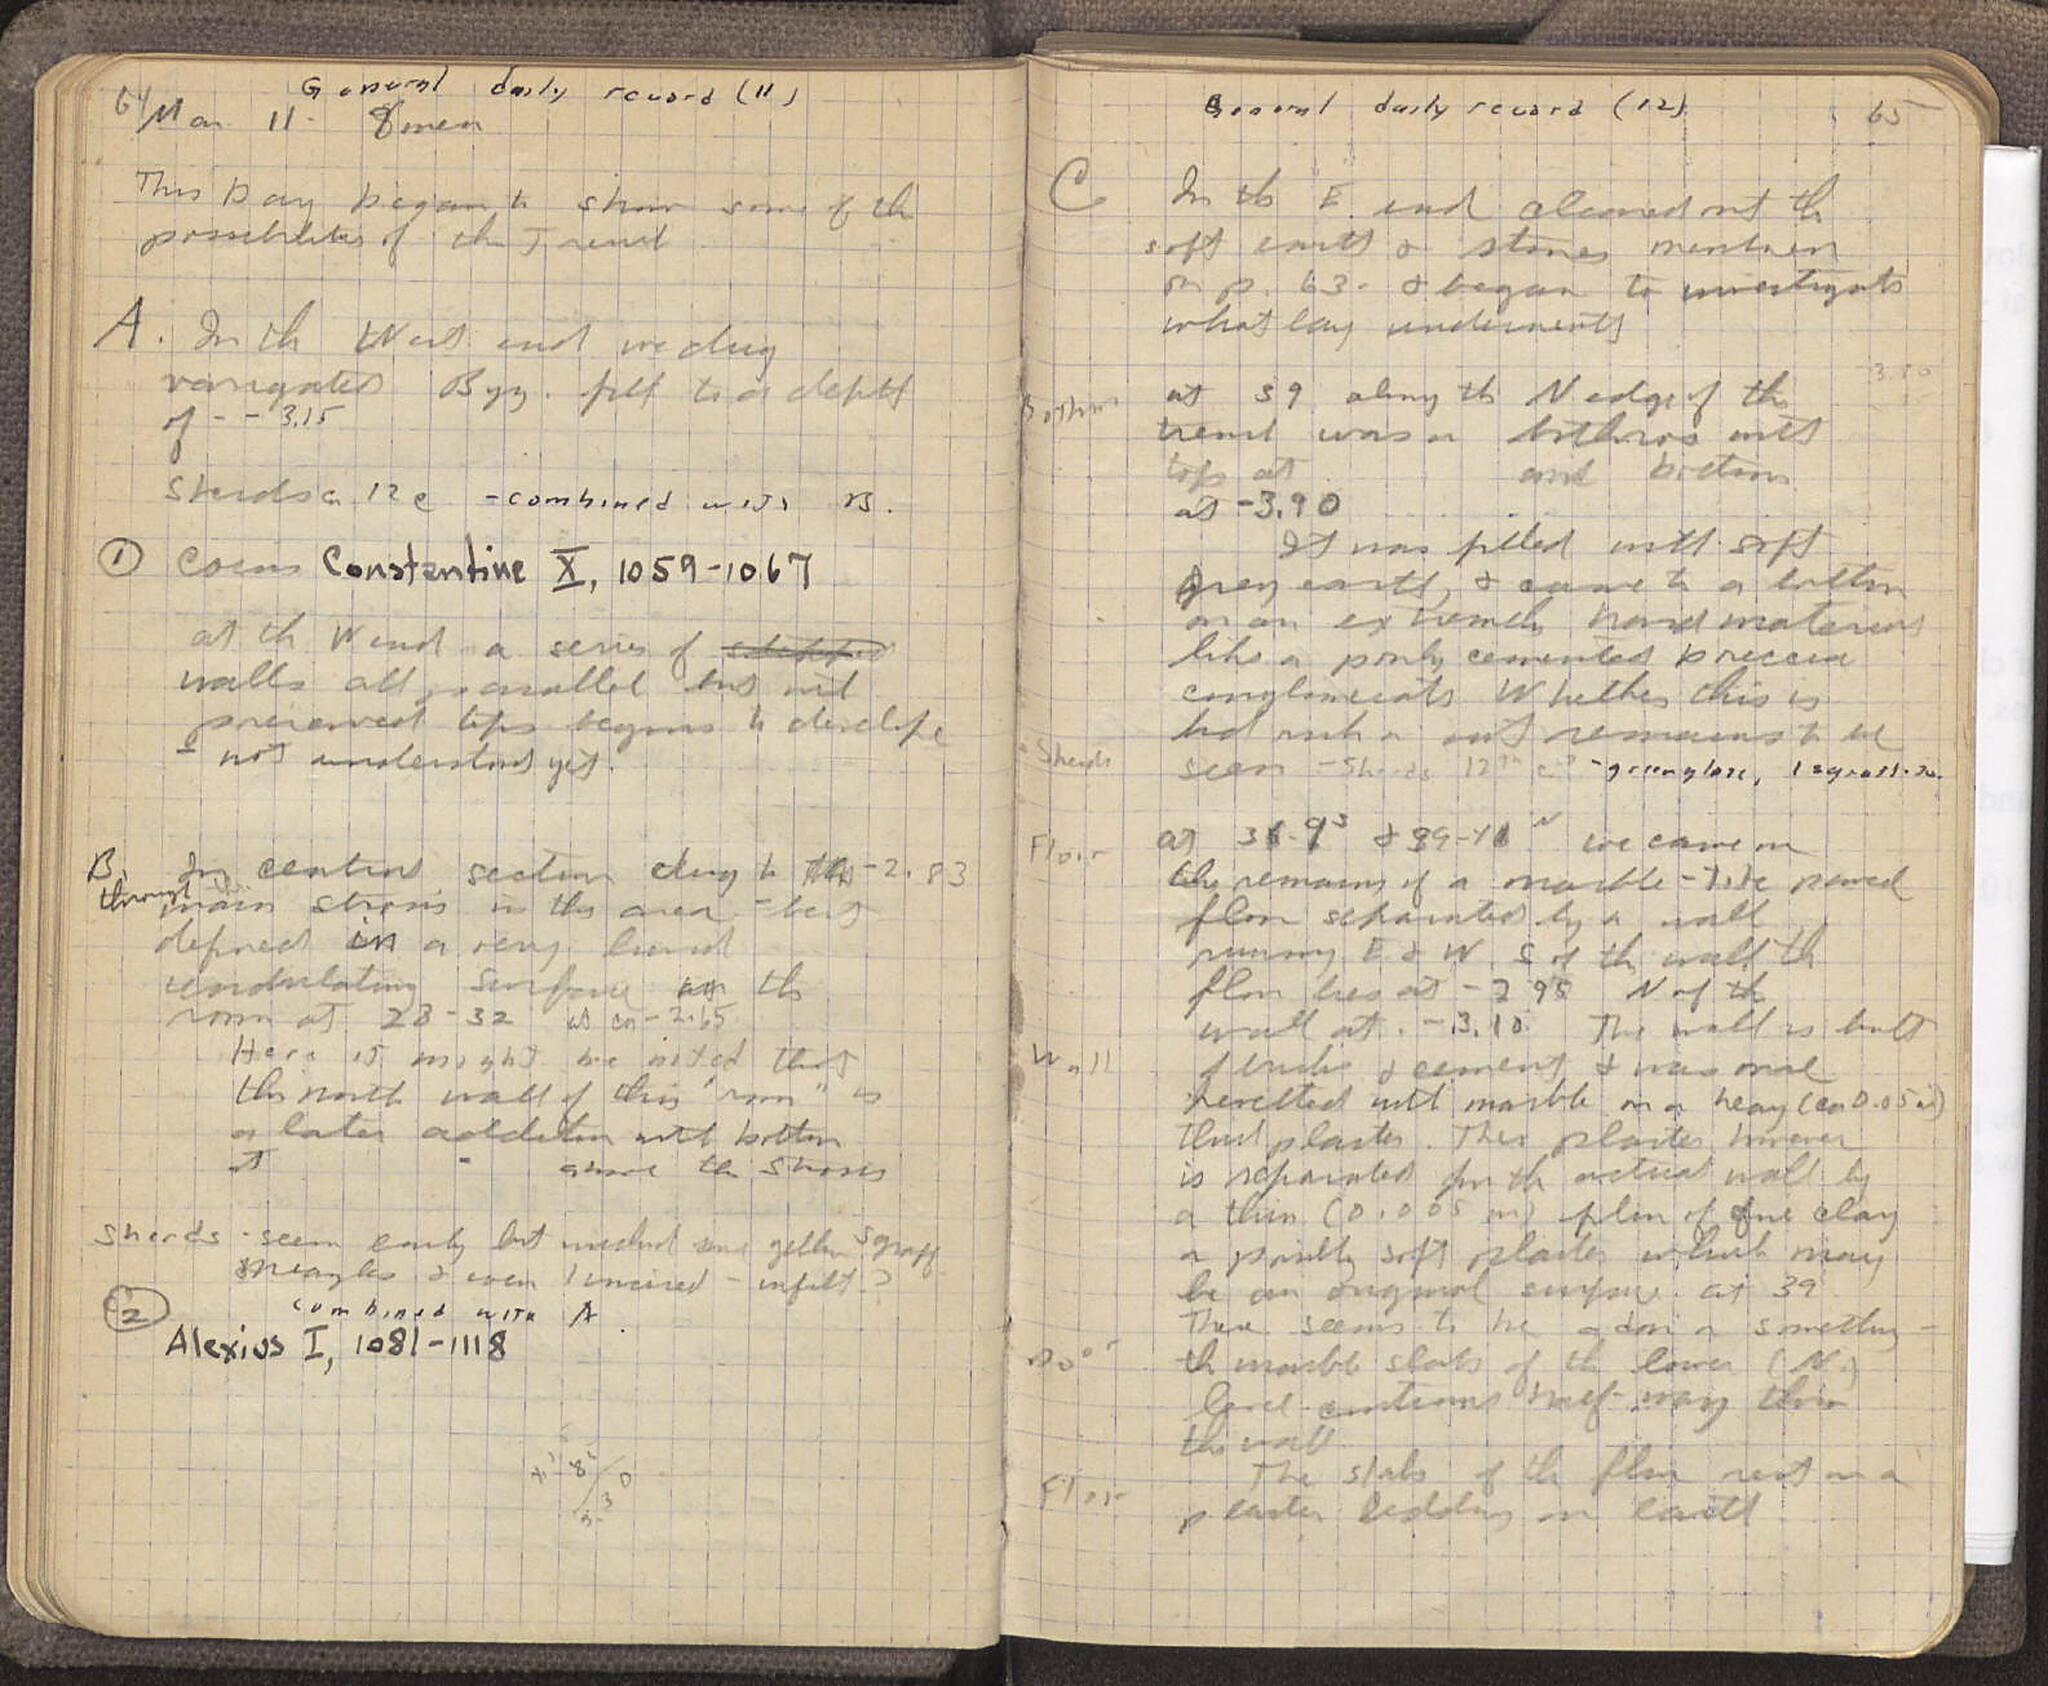 General daily record (11)
64
Mar 11. 8 men
This Day began to show some of the
possibilities of the Trench
A. In the West end we dug
variegated Byz. fill to a depth
of - -3.15
Sherds c 12 c - combined with B.
① Coins Constantine X, 1059-1067
at the W end a series of
walls all parallel but
preserved tops begins to develope
- not understood yet.
B. In central section dug to -2.83
through main strosis in this area - best
defined in a very hard
undulating surface in the
room at 28-32 at ca -2.65
Here it might be noted that
the north wall of this "room" is
a later addition with bottom
at - above the strosis
Sherds - seem early but yellow sgraff
& even 1 incised - infilt?
combined with A.
② Alexius I, 1081-1118
General daily record (12)
65
C In the E. end cleaned out the
soft earth & stones mention
on p. 63. & began to investigate
what lay underneath
-3.80
Bothros at 39 along the N edge of the
trench was a bothros with
tops at and bottom
at -3.90
It was filled with soft
grey earth, & came to a bottom
on an extremely hard material
like a poorly cemented breccia
conglomerate Whether this is
bed rock or not remains to be
Sherds seen - Sherds 12th c? - green glaze, 1 sgraff.
Floor at & we came on
the remains of a marble-tile paved
floor separated by a wall
running E & W. S of the wall the
floor lies at -2.95 N of the
wall at. -3.10. The wall is built
Wall of bricks & cement & was once
revetted with marble on a heavy (ca 0.05 m)
thick plaster. This plaster however
is separated from the actual wall by
a thin (0.005 m) film of fine clay
or possibly soft plaster which may
be an original surface. at 39
There seems to be a door or something -
Door the marble slabs of the lower (N.)
level continues half-way thru
the wall
Floor The slabs of the floor rest on a
plaster bedding on earth